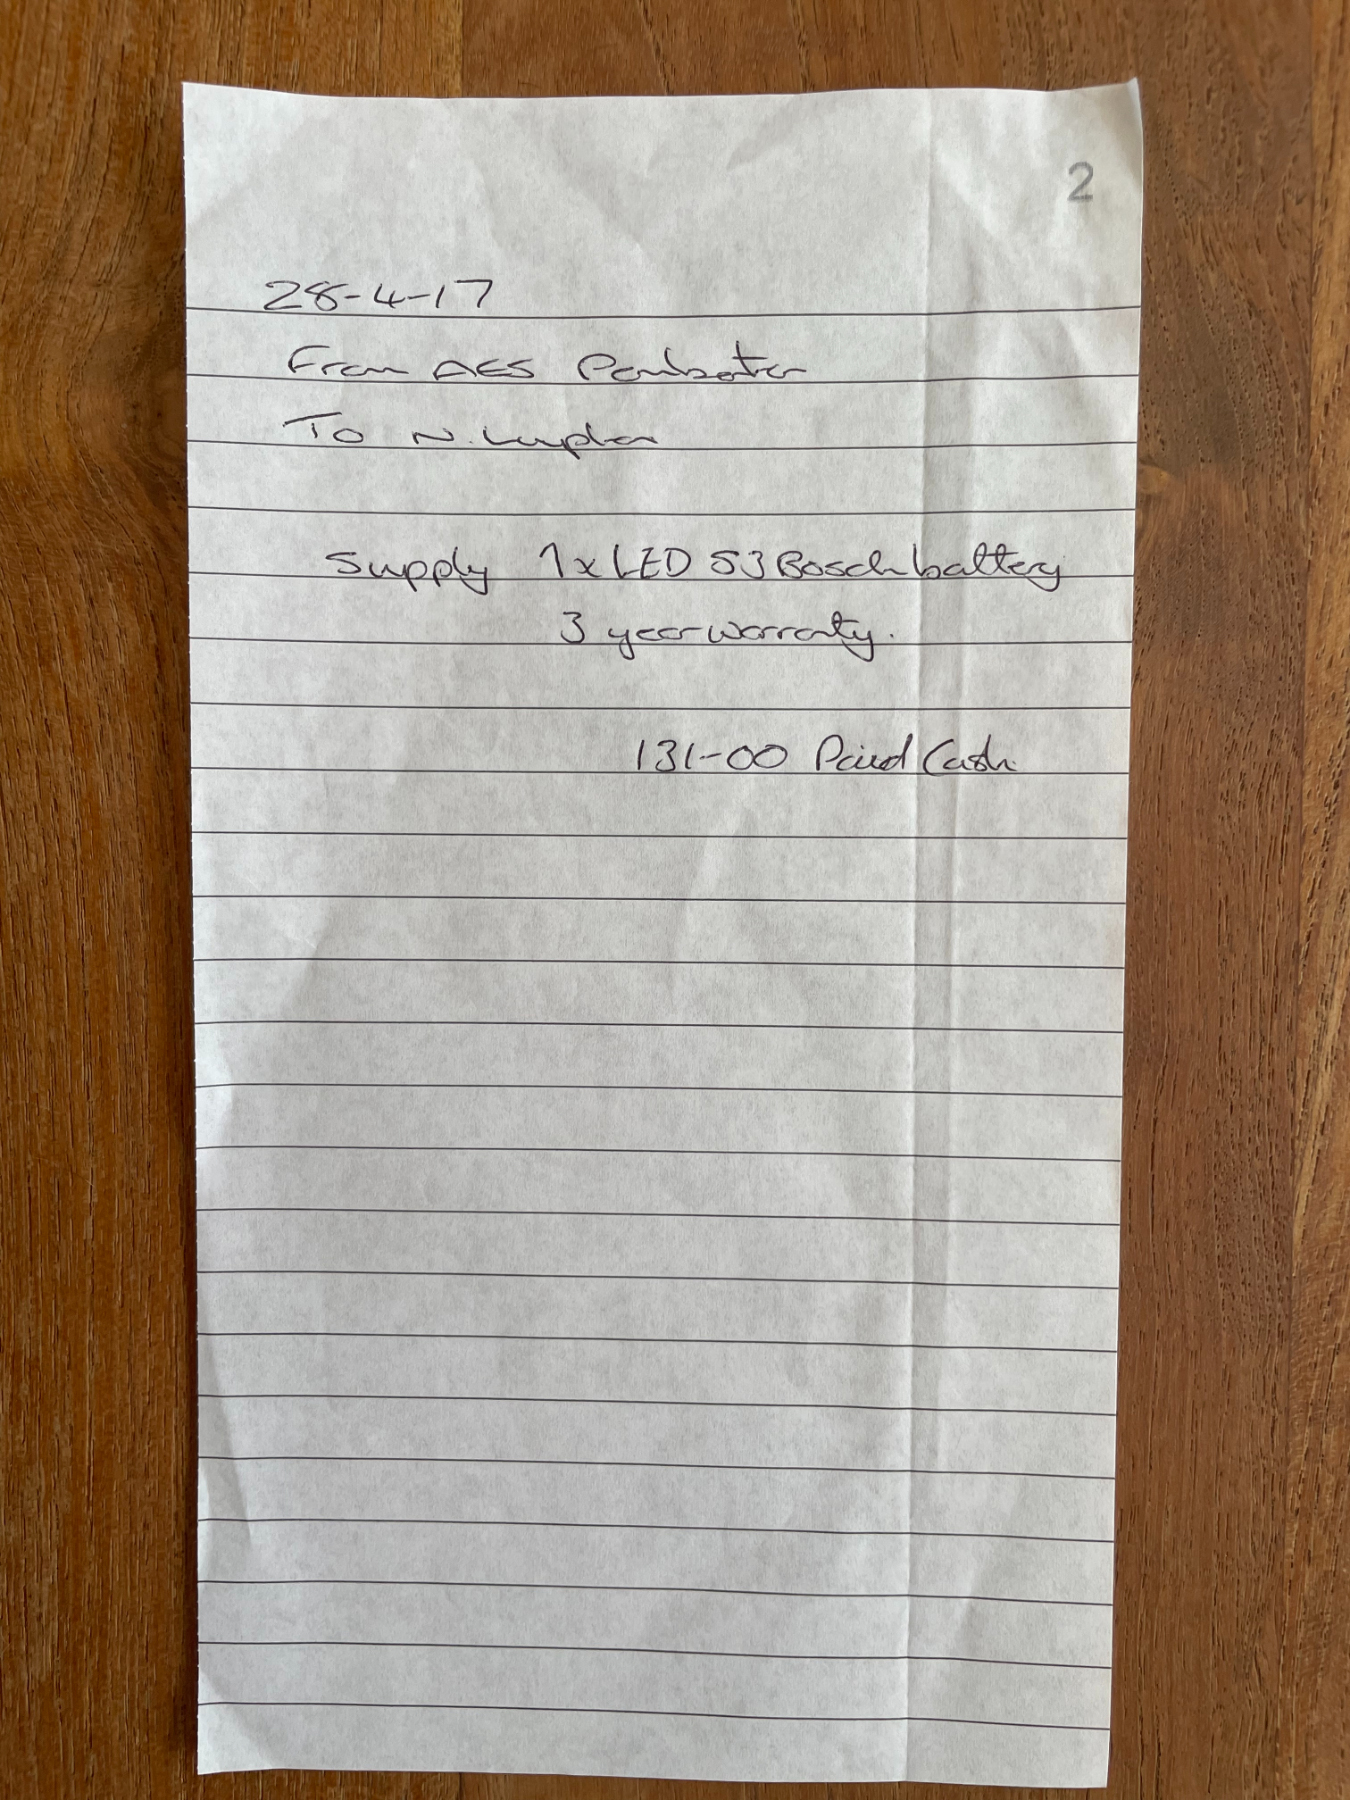 2
28-4-17
From AES
To N.
Supply 1x LED S3 Bosch battery
3 year warranty.
131-00 Paid Cash